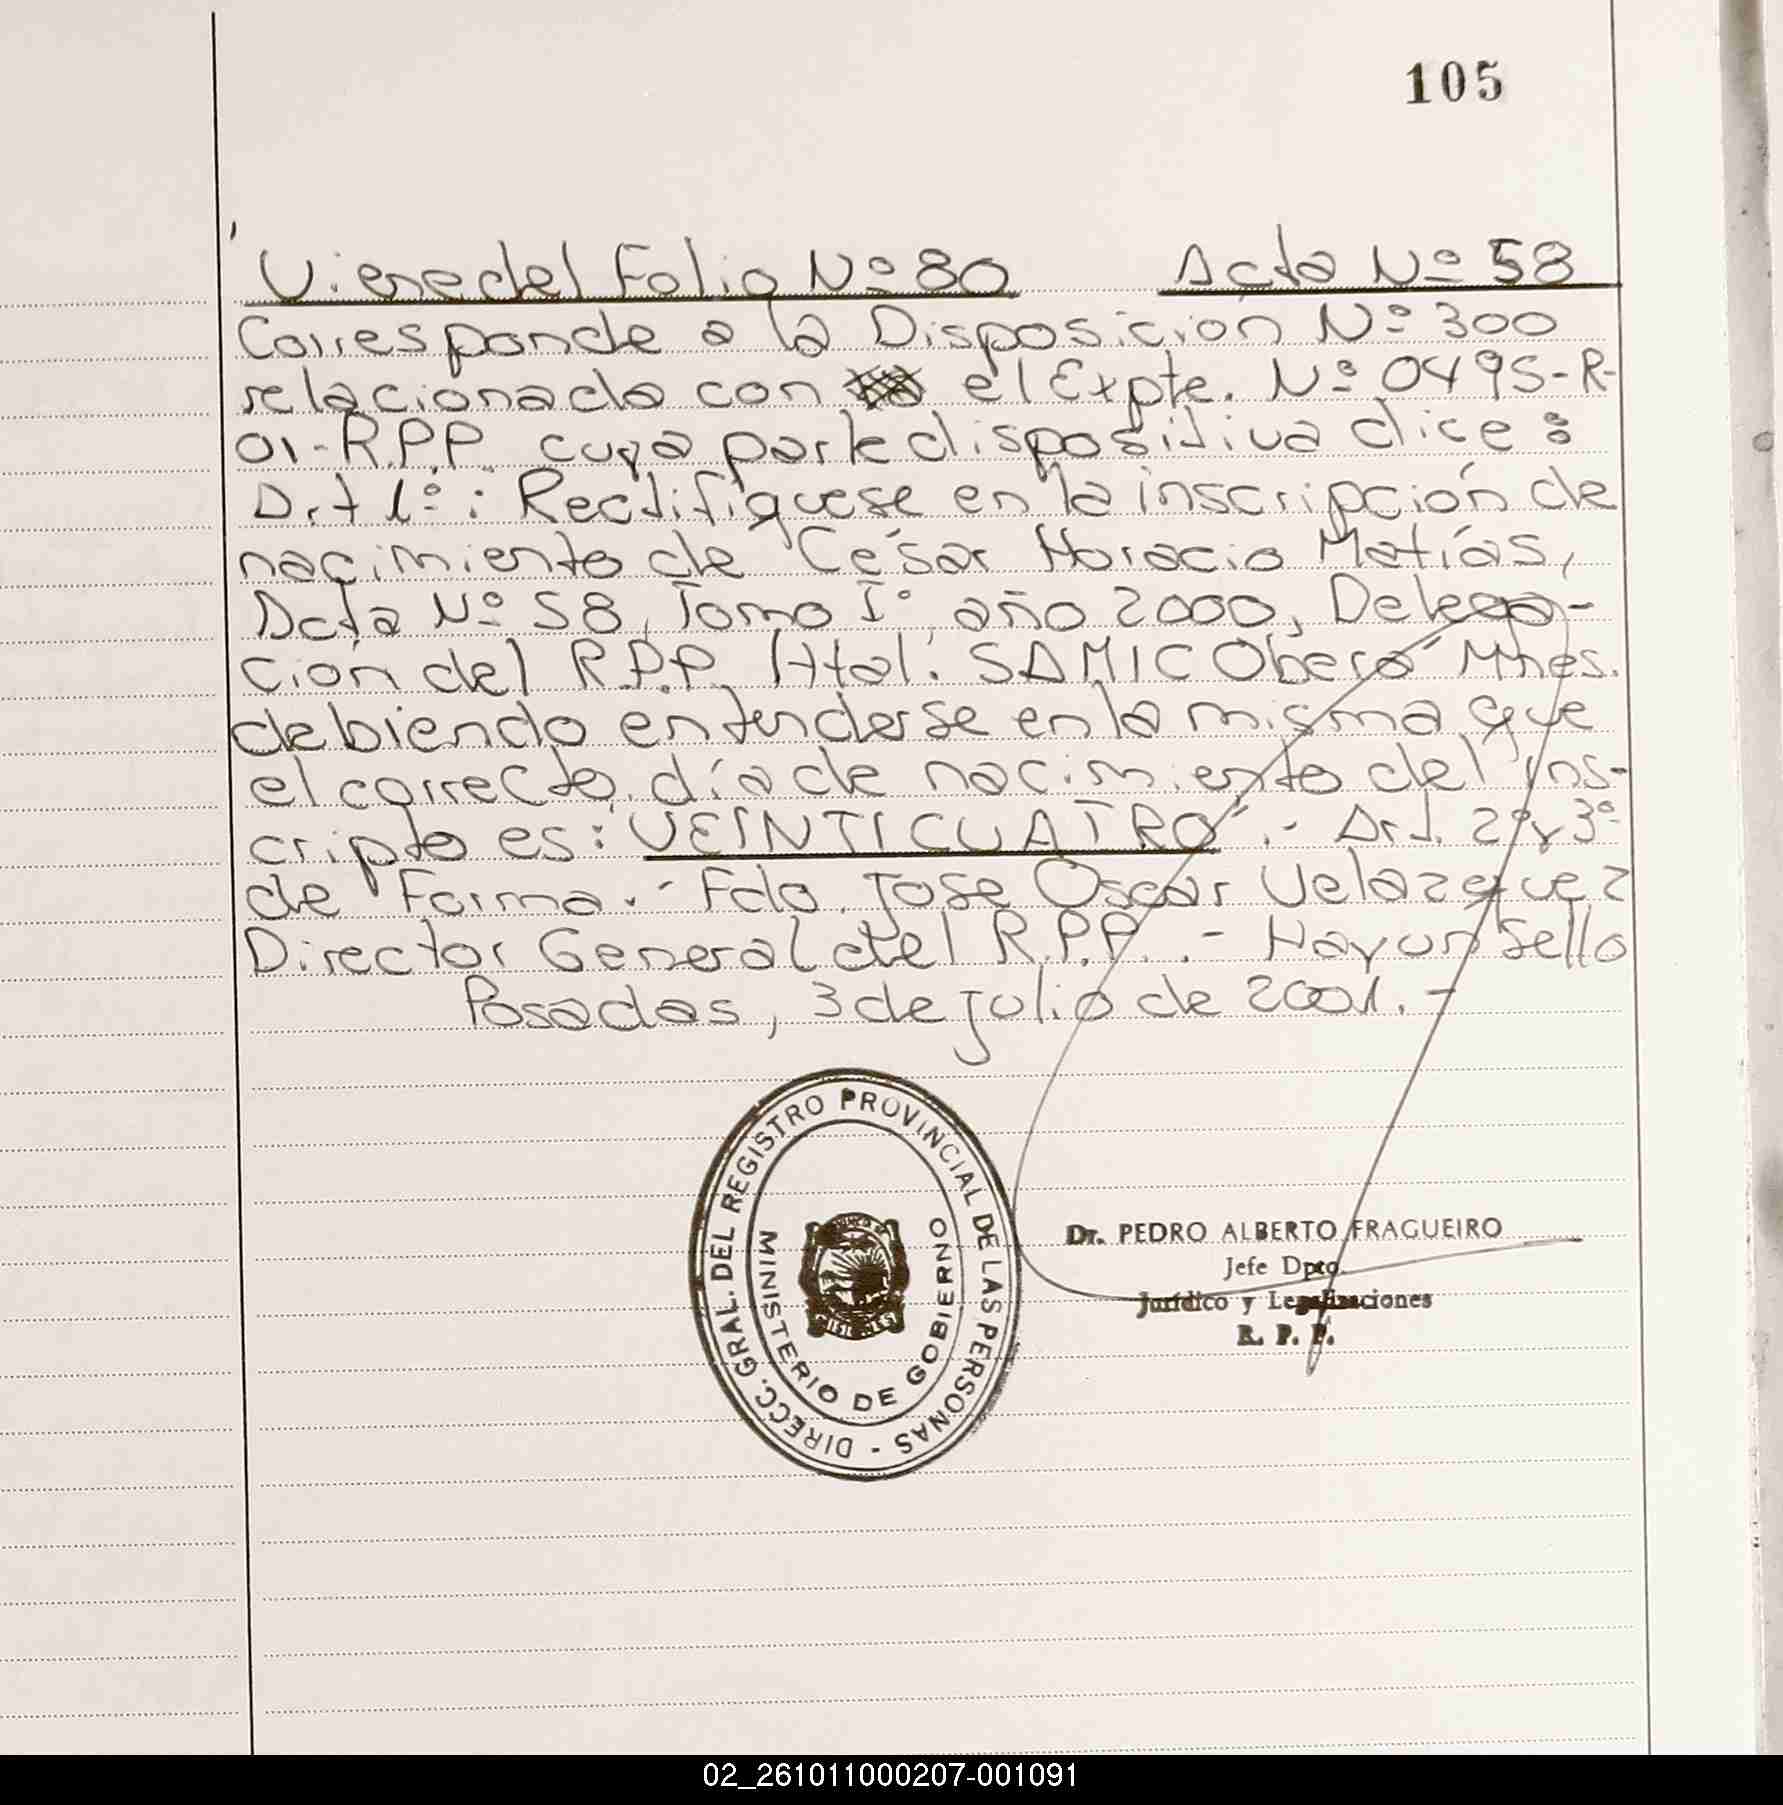 105
Viene del Folio Nº 80 Acta Nº 58
Corresponde a la Disposicion Nº 300
relacionado con el Expte. Nº 0495-R-
01-R.P.P. cuya parte dispositiva dice:
Art 1º: Rectifíquese en la inscripción de
nacimiento de César Horacio Matías,
Acta Nº 58, Tomo Iº, año 2000, Delega-
ción del R.P.P. Htal. SAMIC Oberá Mnes.
debiendo entenderse en la misma que
el correcto día de nacimiento del ins-
cripto es: "VEINTICUATRO".- Art. 2º y 3º
de Forma.- Fdo. Jose Oscar Velazquez
Director General del R.P.P..- Hay un Sello
Posadas, 3 de julio de 2001.-
DIRECC. GRAL. DEL REGISTRO PROVINCIAL DE LAS PERSONAS -
MINISTERIO DE GOBIERNO
MISIONES
Dr. PEDRO ALBERTO FRAGUEIRO
Jefe Dpto.
Jurídico y Legalizaciones
R. P. P.
02_261011000207-001091